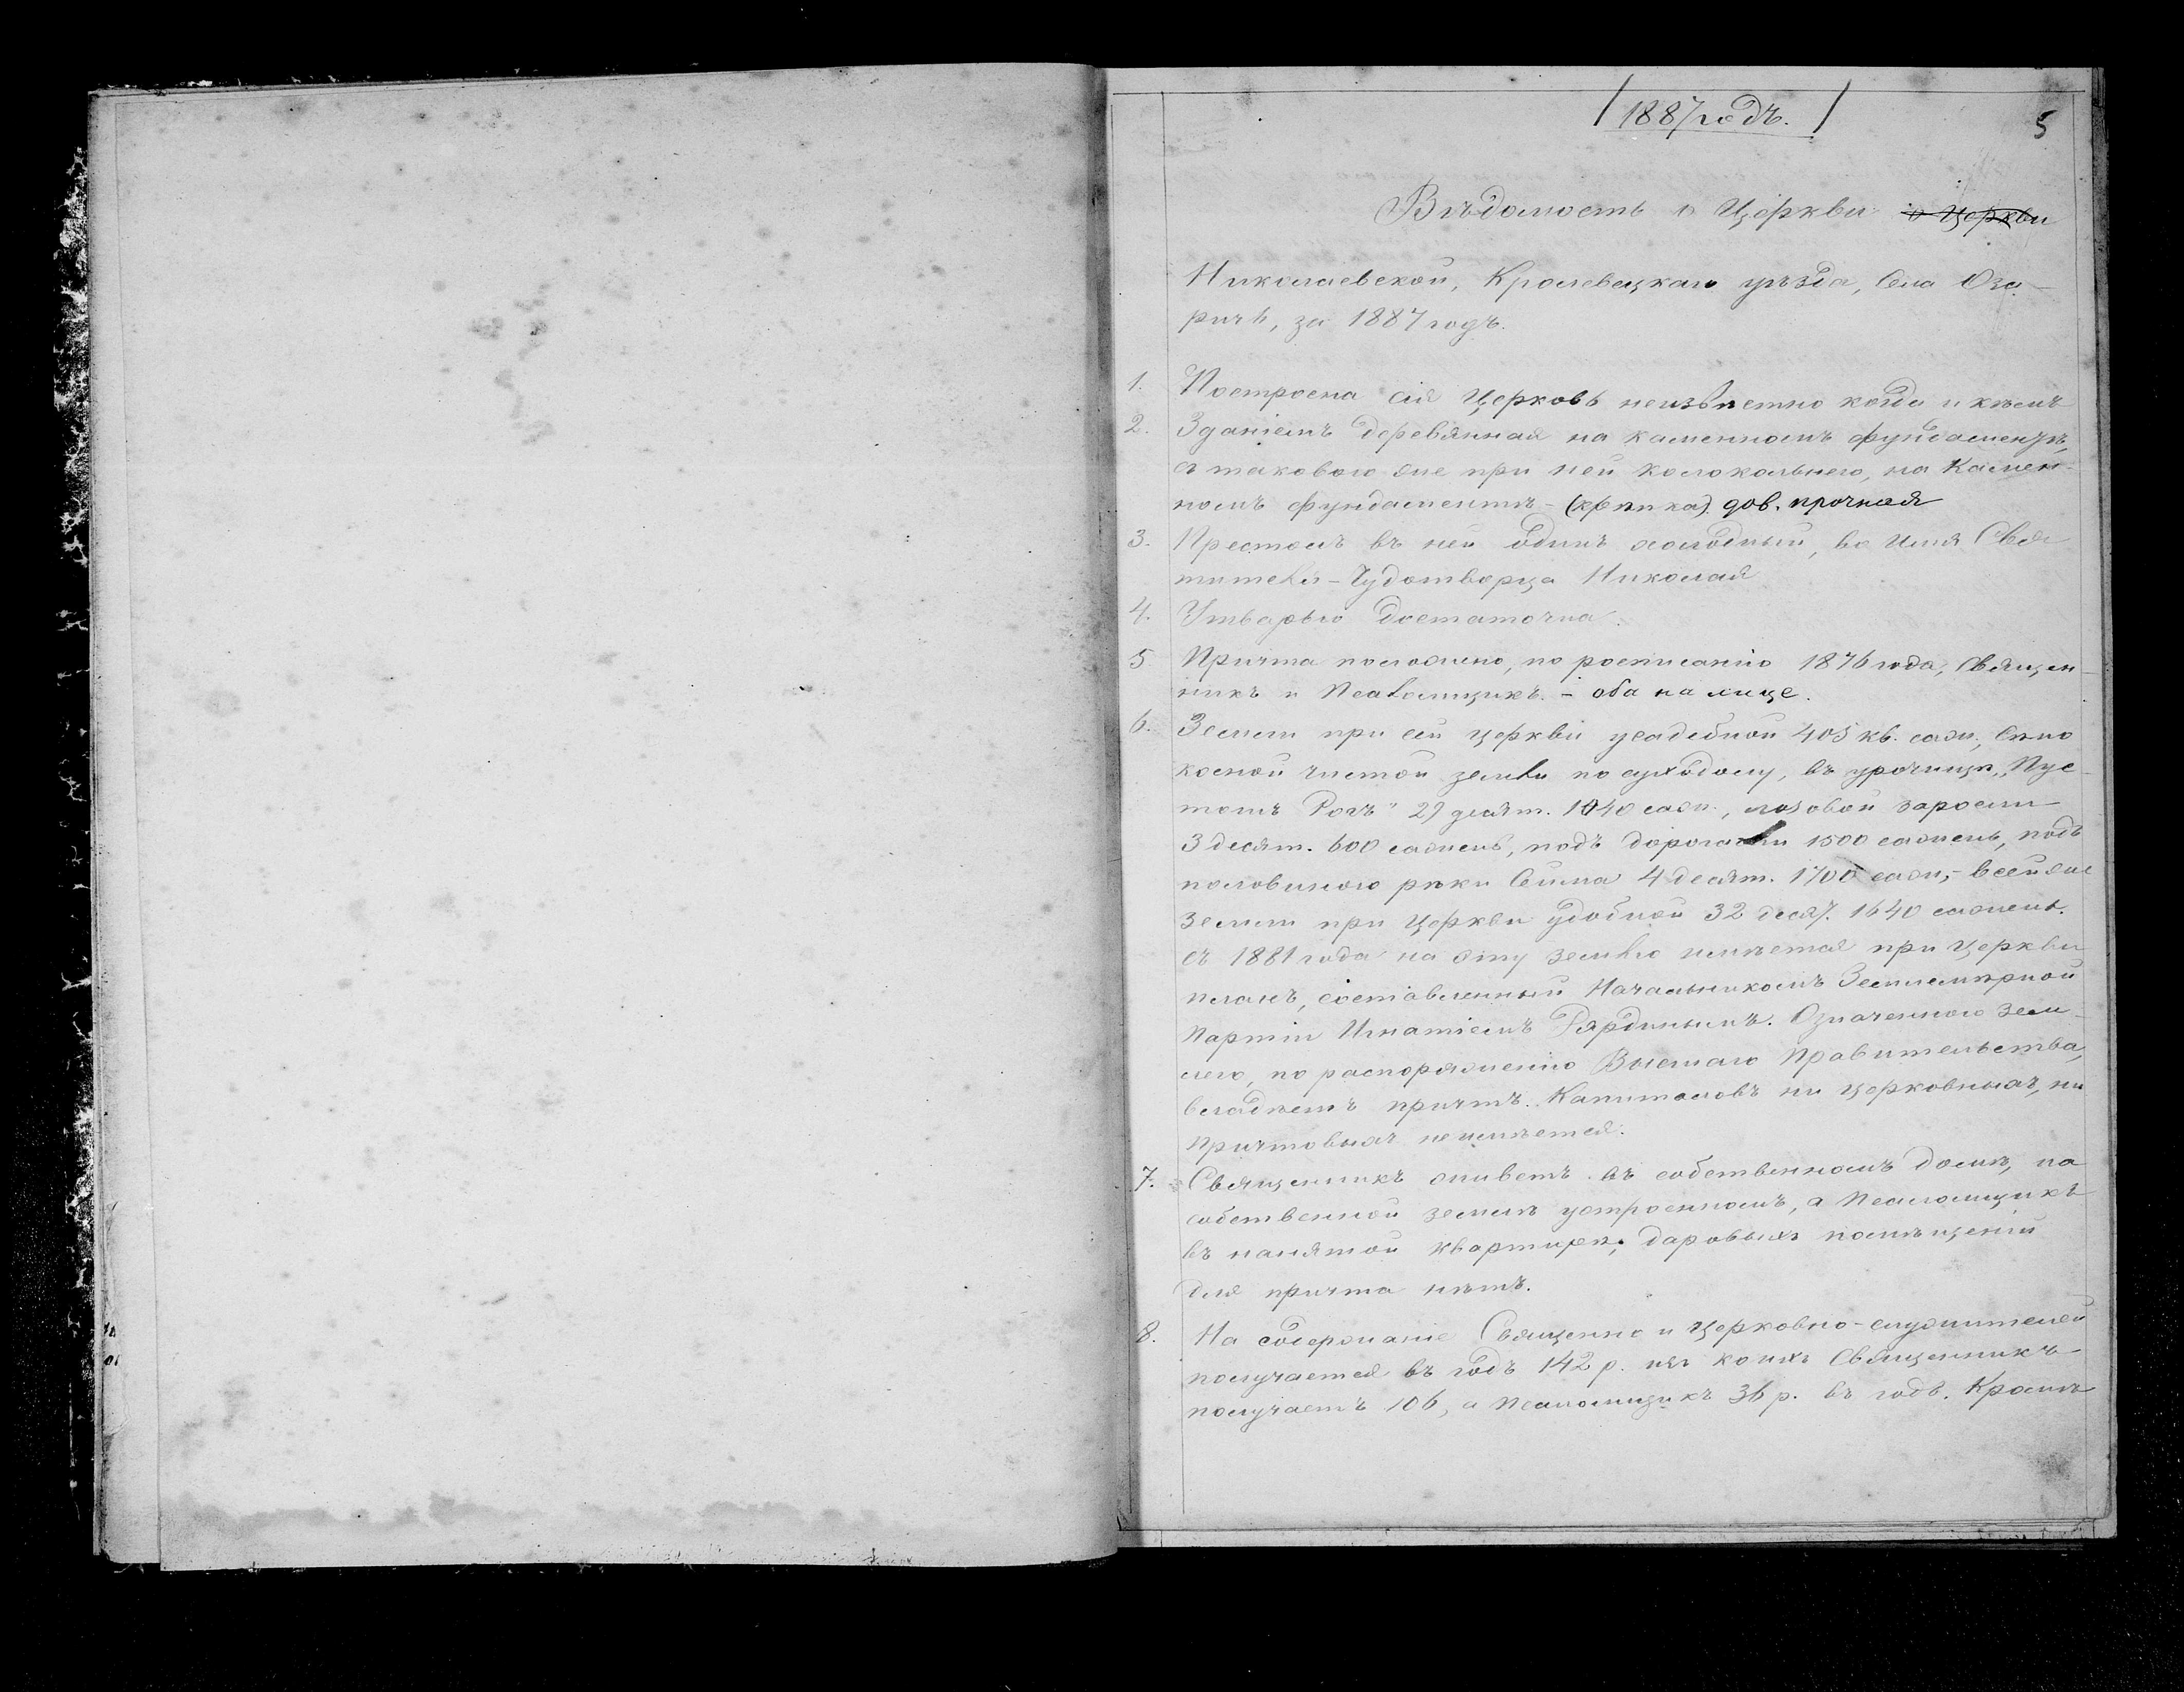 1887 годъ.
5
Вѣдомость о Церкви о Церкви
Николаевской, Кролевецкаго уѣзда, Села Оза-
ричь, за 1887 годъ.
1. Построена сія Церковь неизвѣстно когда и кѣмъ
2. Зданіемъ деревянная на каменномъ фундаментѣ,
съ таковою же при ней колокольнею, на камен-
номъ фундаментѣ - (крѣпка). дов. прочная
3. Престолъ въ ней одинъ холодный, во имя Свя
тителя - Чудотворца Николая
4. Утварью достаточна.
5 Причта положено, по росписанію 1876 года, Священ-
никъ и Псаломщикъ. - оба на лице.
6. Земли при сей церкви усадебной 405 кв. саж., сѣно
косной чистой земли по суходолу, въ урочищѣ „Пус-
томъ Рогѣ" 29 десят. 1040 саж., лозовой заросли
3 десят. 600 сажень, подъ дорогами 1500 сажень, подъ
половиною рѣки Сейма 4 десят. 1700 саж,- всей же
земли при Церкви удобной 32 деся. 1640 сажень.
съ 1881 года на эту землю имѣется при Церкви
планъ, составленный Начальникомъ Землемѣрной
Партіи Игнатіемъ Означенною зем-
лею, по распоряженію Высшаго Правительства,
владѣетъ причтъ. Капиталовъ ни церковныхъ, ни
причтовыхъ не имѣется.
7. Священникъ живетъ въ собственномъ домѣ, на
собственной землѣ устроенномъ, а Псаломщикъ
въ нанятой квартирѣ; даровыхъ помѣщеній
для причта нѣтъ.
8. На содержаніе Священно и Церковно-служителей
получается въ годъ 142 р. изъ коихъ Священникъ
получаетъ 106, а Псаломщикъ 36 р. въ годъ. Кромѣ